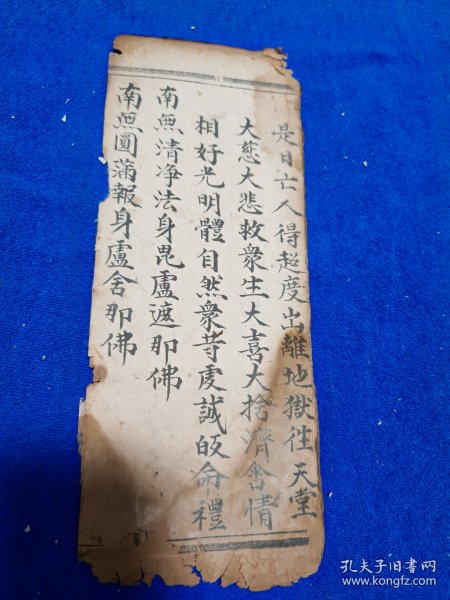 是日亡人得超度出離地獄徃天堂
大慈大悲救衆生大喜大捨濟含情
相好光明體自然衆等虔誠皈命禮
南無清净法身毘盧遮那佛
南無圓滿報身盧舍那佛
孔夫子旧书网
www.kongfz.com